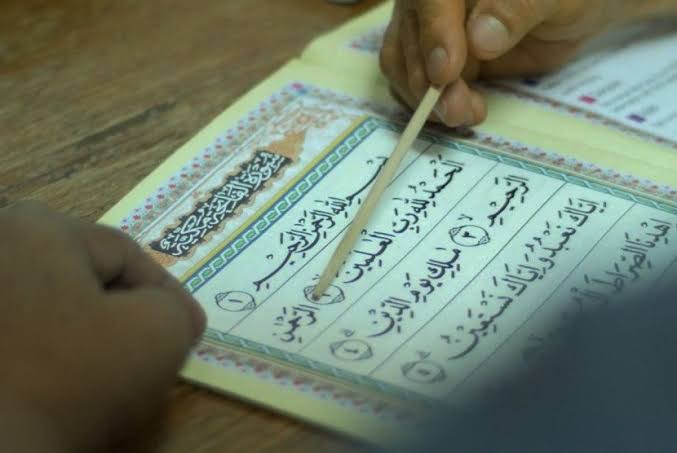 سورة الفاتحة
بِسْمِ اللّٰهِ الرَّحْمٰنِ الرَّحِيْمِ ١
اَلْحَمْدُ لِلّٰهِ رَبِّ الْعٰلَمِيْنَ ٢ الرَّحْمٰنِ
الرَّحِيْمِ ٣ مٰلِكِ يَوْمِ الدِّيْنِ ٤
اِيَّاكَ نَعْبُدُ وَاِيَّاكَ نَسْتَعِيْنُ ٥
اِهْدِنَا الصِّرَاطَ